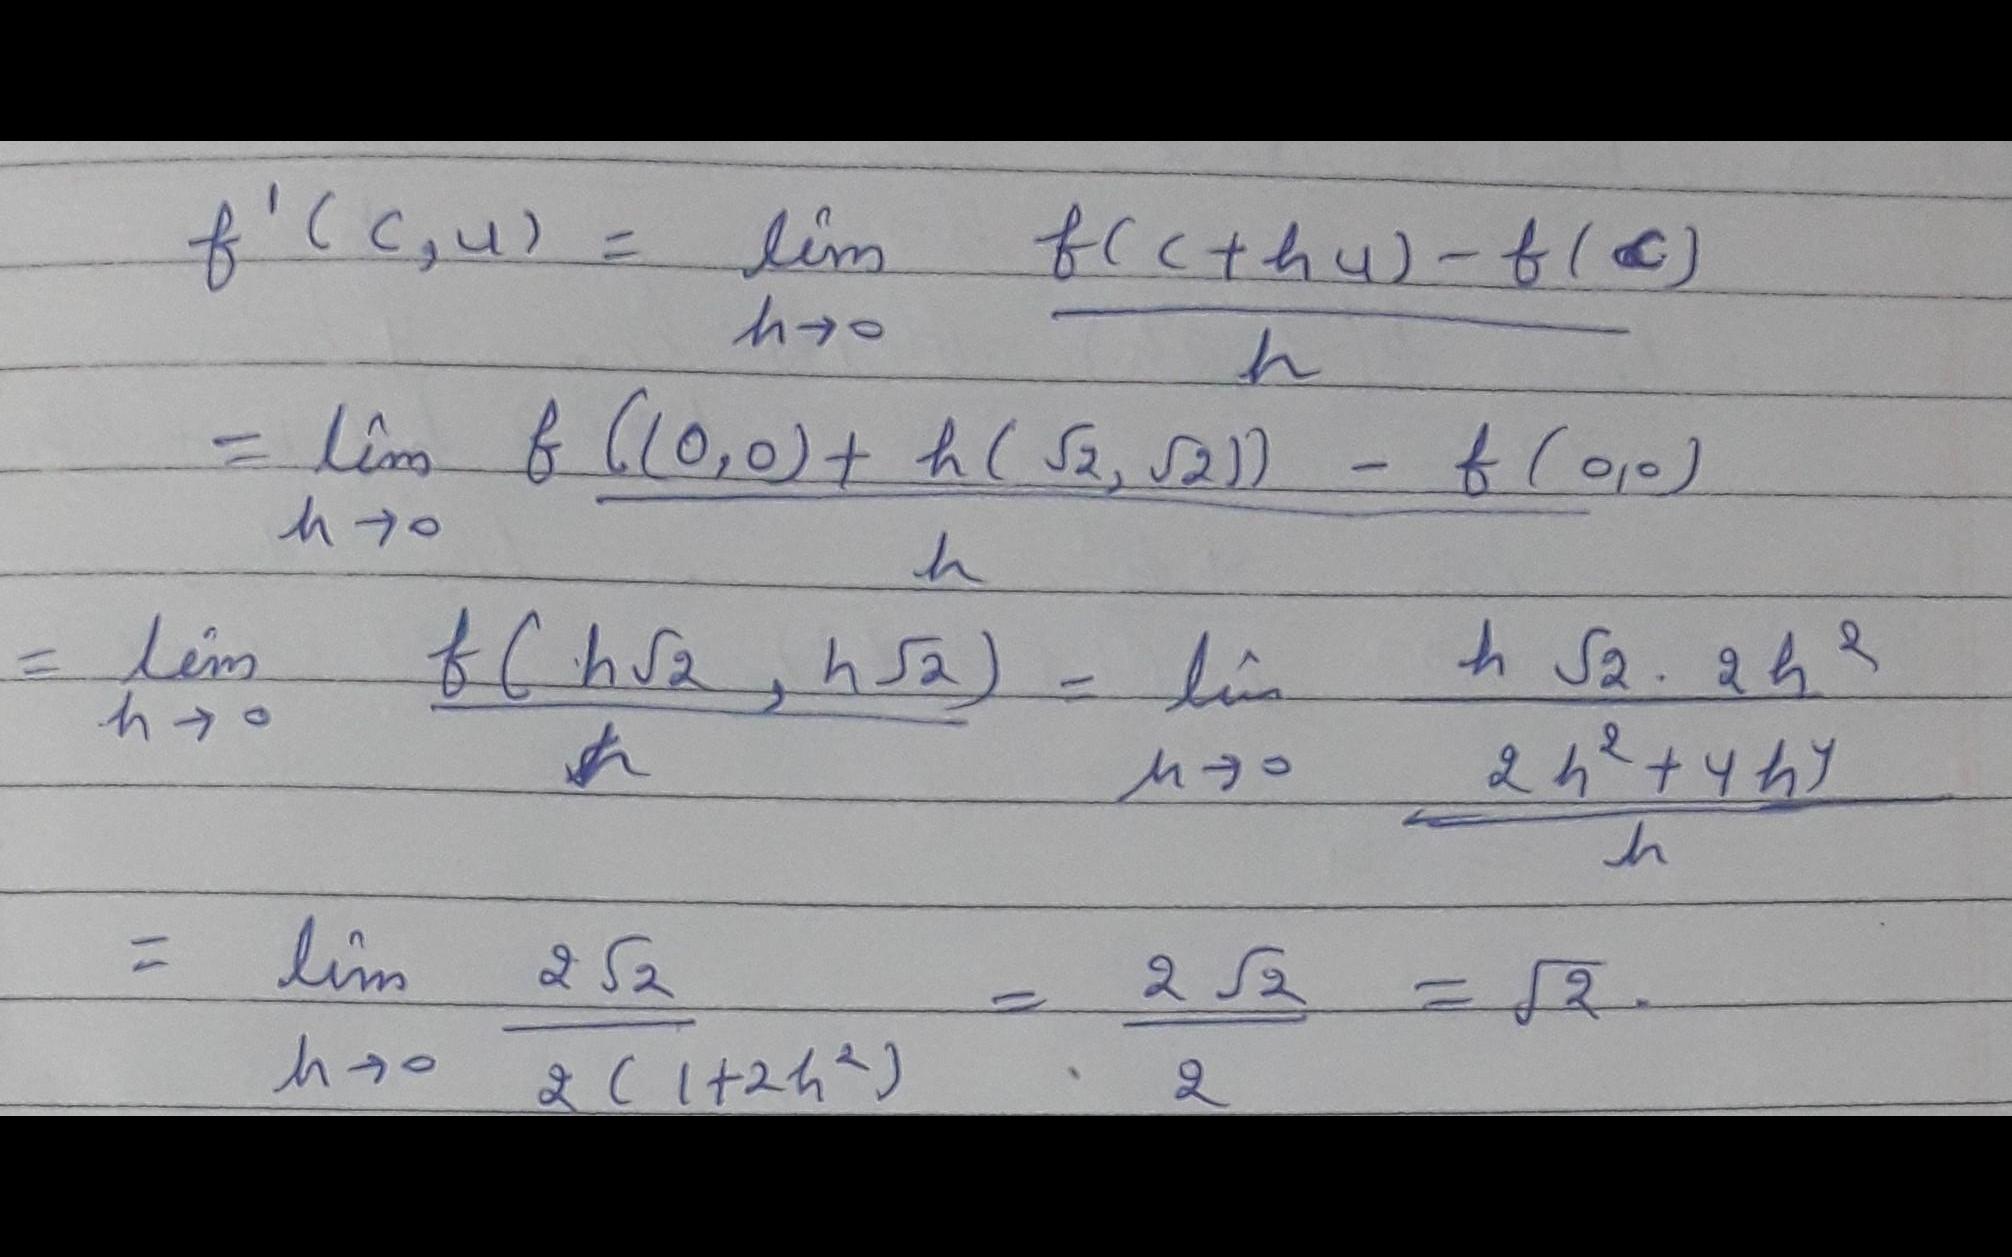 f'(c,u) = lim h→0 (f(c+hu) - f(c))/h
= lim h→0 (f((0,0) + h(√2,√2)) - f(0,0))/h
= lim h→0 f(h√2, h√2)/h = lim h→0 ((h√2 . 2h²)/(2h²+4h⁴))/h
= lim h→0 2√2/(2(1+2h²)) = 2√2/2 = √2.